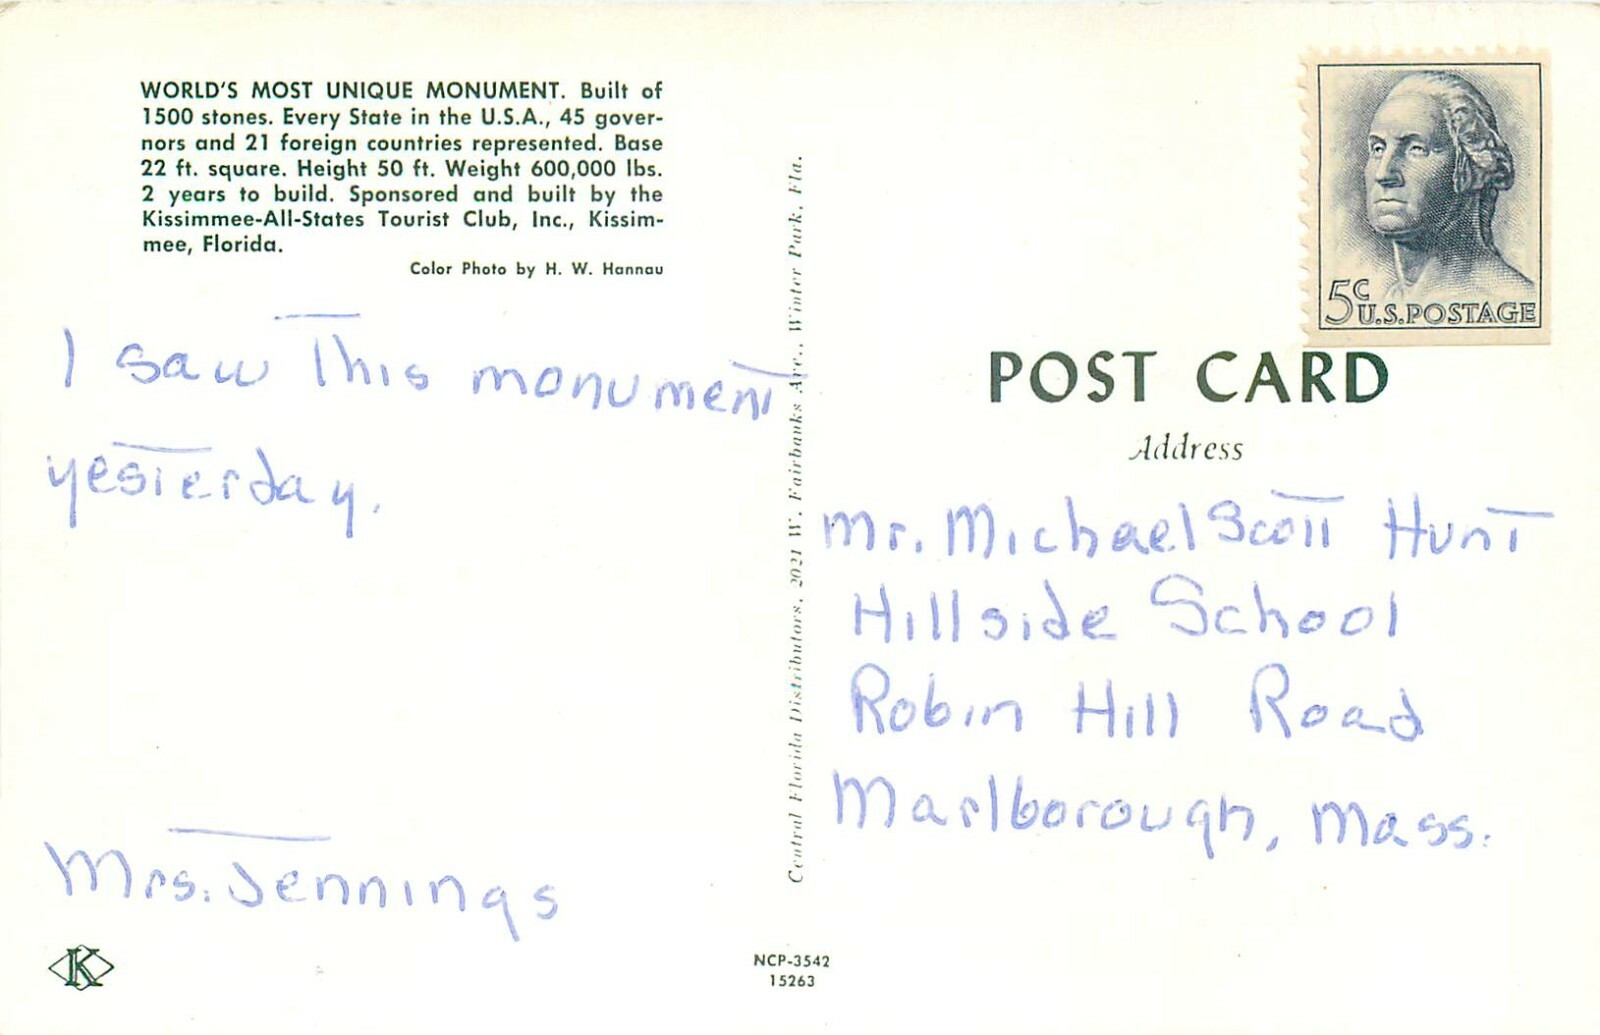 WORLD'S MOST UNIQUE MONUMENT. Built of
1500 stones. Every State in the U.S.A., 45 gover-
nors and 21 foreign countries represented. Base
22 ft. square. Height 50 ft. Weight 600,000 lbs.
2 years to build. Sponsored and built by the
Kissimmee-All-States Tourist Club, Inc., Kissim-
mee, Florida.
Color Photo by H. W. Hannau
I saw This monument
yesterday.
Mrs. Jennings
K
Central Florida Distributors, 2021 W. Fairbanks Ave., Winter Park, Fla.
NCP-3542
15263
5c U.S. POSTAGE
POST CARD
Address
Mr. Michael Scott Hunt
Hillside School
Robin Hill Road
Marlborough, Mass.